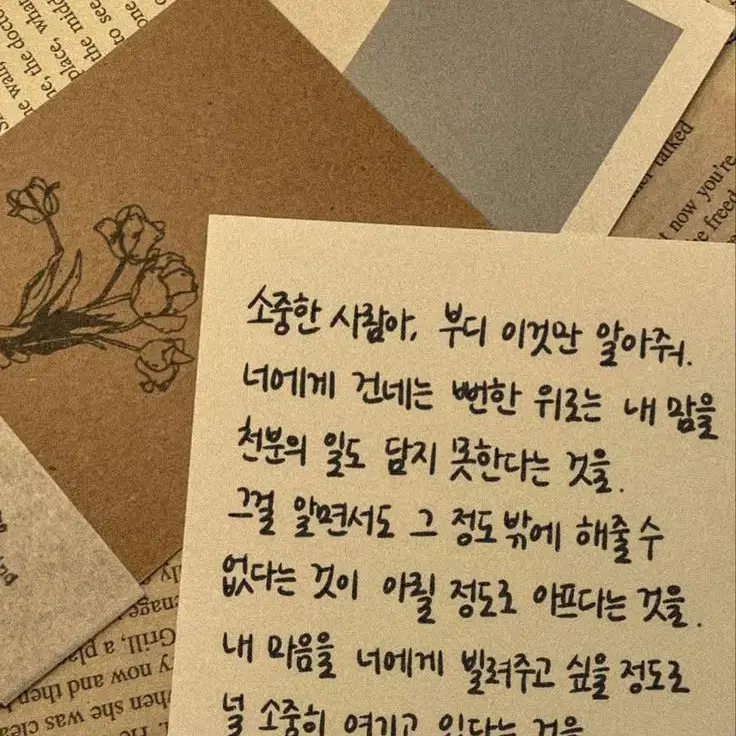 소중한 사람아, 부디 이것만 알아줘.
너에게 건네는 뻔한 위로는 내 맘을
천분의 일도 담지 못한다는 것을.
그걸 알면서도 그 정도밖에 해줄 수
없다는 것이 아릴 정도로 아프다는 것을.
내 마음을 너에게 빌려주고 싶을 정도로
널 소중히 여기고 있다는 것을
talked
now you're
e freed
Grill, a pla
ry now and then
when she was clea